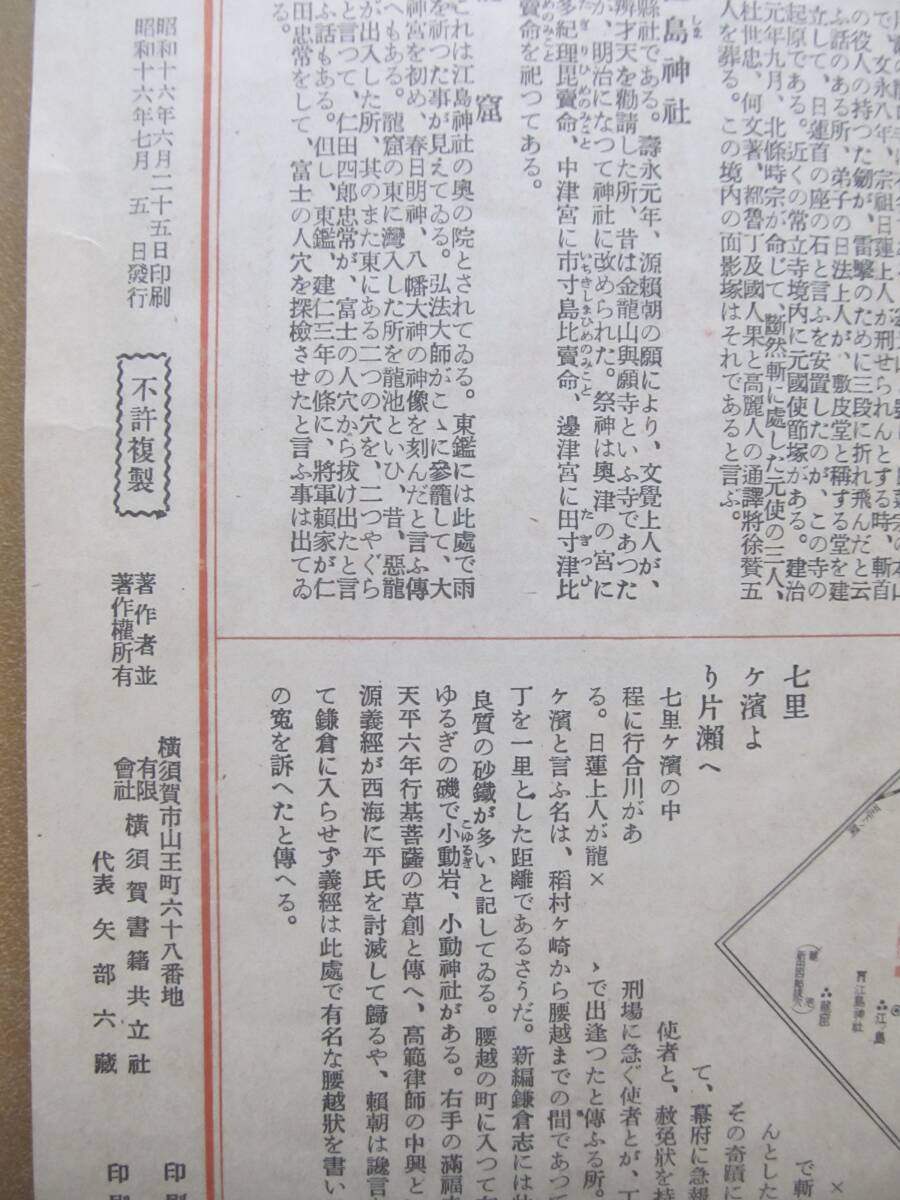 で、文永八年、宗祖日蓮上人が刑せられんとする時、斬首
の役人の持つた劒が、雷擊のために三段に折れ飛んだと云
ふ話のある所、弟子の日法上人が、敷皮堂と稱する堂を建
立して、日蓮首の座の石と言ふを安置したのが、この寺の
起原である。近くの常立寺境內に元國使節塚がある。建治
元年九月、北條時宗が命じて、斷然斬に處した元使の三人、
杜世忠、何文著、都魯丁及國人果と高麗人の通譯將徐賛五
人を葬る。この境內の面影塚はそれであると言ふ。
島神社
しま
縣社である。壽永元年、源賴朝の願により、文覺上人が、
辨才天を勸請した所、昔は金龍山與願寺といふ寺であつた
が、明治になつて神社に改められた。祭神は奧津の宮に
多紀理毘賣命、中津宮に市寸島比賣命、邊津宮に田寸津比
たぎりひめのみこと
いちきしまひめのみこと
たぎつひ
賣命を祀つてある。
めのみこと
窟
これは江島神社の奧の院とされてゐる。東鑑には此處で雨
を祈つた事が見えてゐる。弘法大師がこゝに參籠して、大
神宮を初め、春日明神、八幡大神の神像を刻んだと言ふ傳
へもある。龍窟の東に灣入した所を龍池といひ、昔、惡龍
が出入した所、其のまた東にある二つの穴を、二つやぐら
と言つて、仁田四郎忠常が、富士の人穴から拔け出たと言
ふ話もある。但し、東鑑、建仁三年の條に、將軍賴家が仁
田忠常をして、富士の人穴を探檢させたと言ふ事は出てゐ
る。
七里
ケ濱よ
り片瀨へ
七里ケ濱の中
程に行合川があ
る。日蓮上人が龍×
ケ濱と言ふ名は、稻村ケ崎から腰越までの間であつて
丁を一里とした距離であるさうだ。新編鎌倉志には
良質の砂鐵が多いと記してゐる。腰越の町に入つて
ゆるぎの磯で小動岩、小動神社がある。右手の滿福
こゆるぎ
天平六年行基菩薩の草創と傳へ、高範律師の中興と
源義經が西海に平氏を討滅して歸るや、賴朝は讒言
て鎌倉に入らせず義經は此處で有名な腰越狀を書い
の寃を訴へたと傳へる。
で斬
んとした
その奇蹟に
て、幕府に急報
使者と、赦免狀を持
刑場に急ぐ使者とが、丁
ゝで出逢つたと傳ふる所。
江島神社
江ノ島
龍窟
昭和十六年六月二十五日印刷
昭和十六年七月 五 日發行
不許複製
著作者並
著作權所有
橫須賀市山王町六十八番地
有限會社 橫須賀書籍共立社
代表 矢部六藏
印刷
印刷